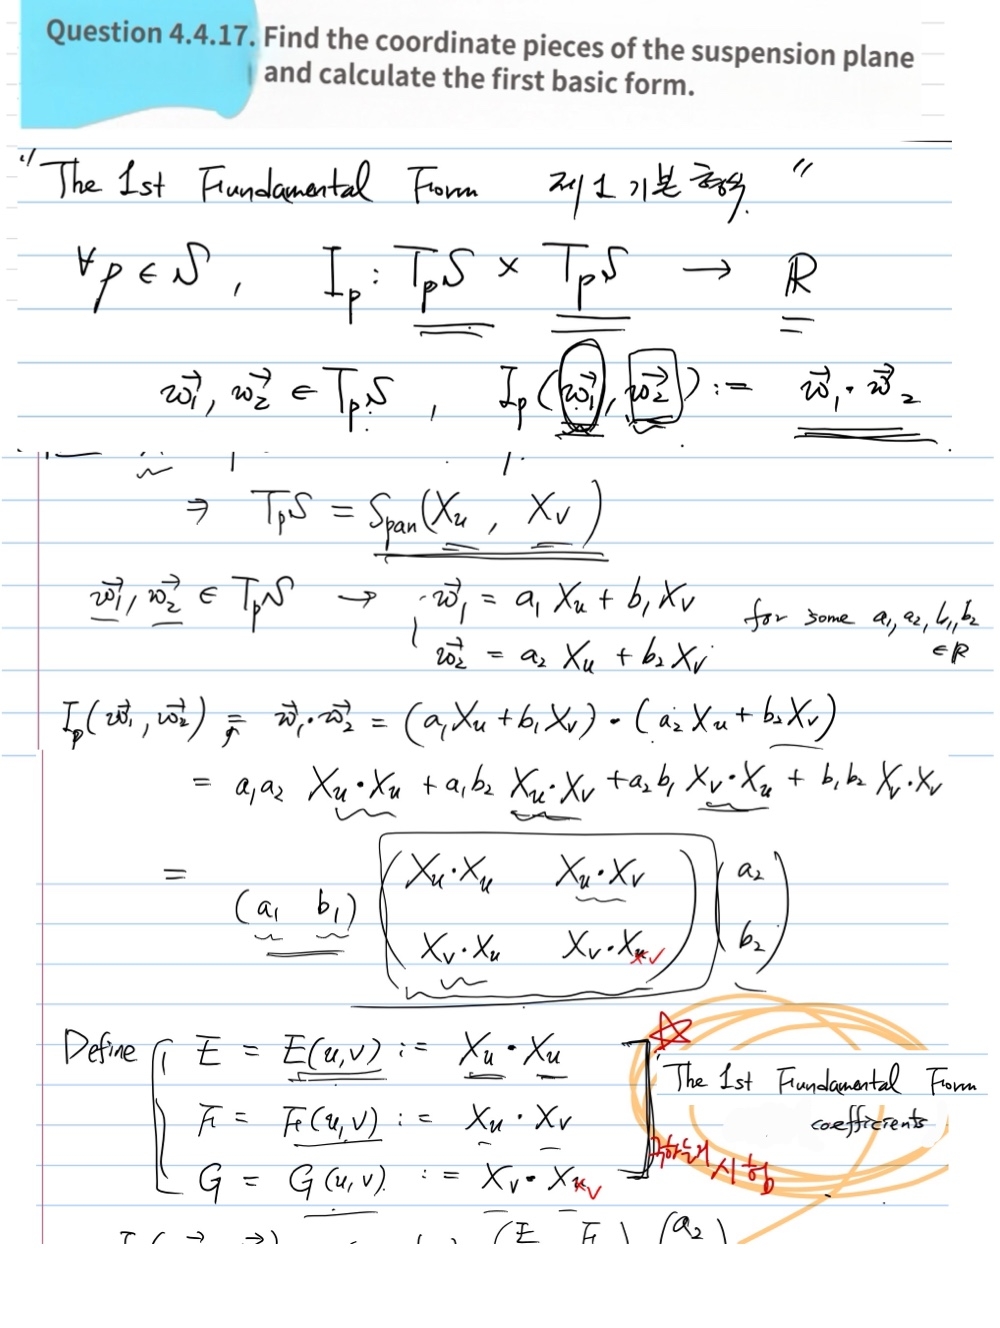 Question 4.4.17. Find the coordinate pieces of the suspension plane
and calculate the first basic form.
"The 1st Fundamental Form 제1기본형식"
∀p ∈ S, I_p : T_pS × T_pS → ℝ
w⃗₁, w⃗₂ ∈ T_pS, I_p(w⃗₁, w⃗₂) := w⃗₁·w⃗₂
⇒ T_pS = Span(X_u, X_v)
w⃗₁, w⃗₂ ∈ T_pS → w⃗₁ = a₁X_u + b₁X_v for some a₁, a₂, b₁, b₂
w⃗₂ = a₂X_u + b₂X_v ∈ ℝ
I_p(w⃗₁, w⃗₂) = w⃗₁·w⃗₂ = (a₁X_u + b₁X_v)·(a₂X_u + b₂X_v)
= a₁a₂ X_u·X_u + a₁b₂ X_u·X_v + a₂b₁ X_v·X_u + b₁b₂ X_v·X_v
= (a₁ b₁) (X_u·X_u X_u·X_v) (a₂)
(X_v·X_u X_v·X_v) (b₂)
Define E = E(u,v) := X_u·X_u ☆
F = F(u,v) := X_u·X_v "The 1st Fundamental Form
G = G(u,v) := X_v·X_v coefficients
구하는거 시험
(E F) (a₂)